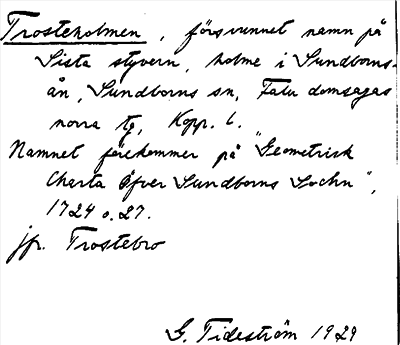 Trosteholmen, försvunnet namn på
Sista styvern, holme i Sundborns-
ån, Sundborns sn, Falu domsagas
norra tg, Kopp. l.
Namnet förekommer på "Geometrisk
Charta öfver Sundborns Sochn",
1724 o. 27.
jfr. Trostebro
G. Tideström 1929